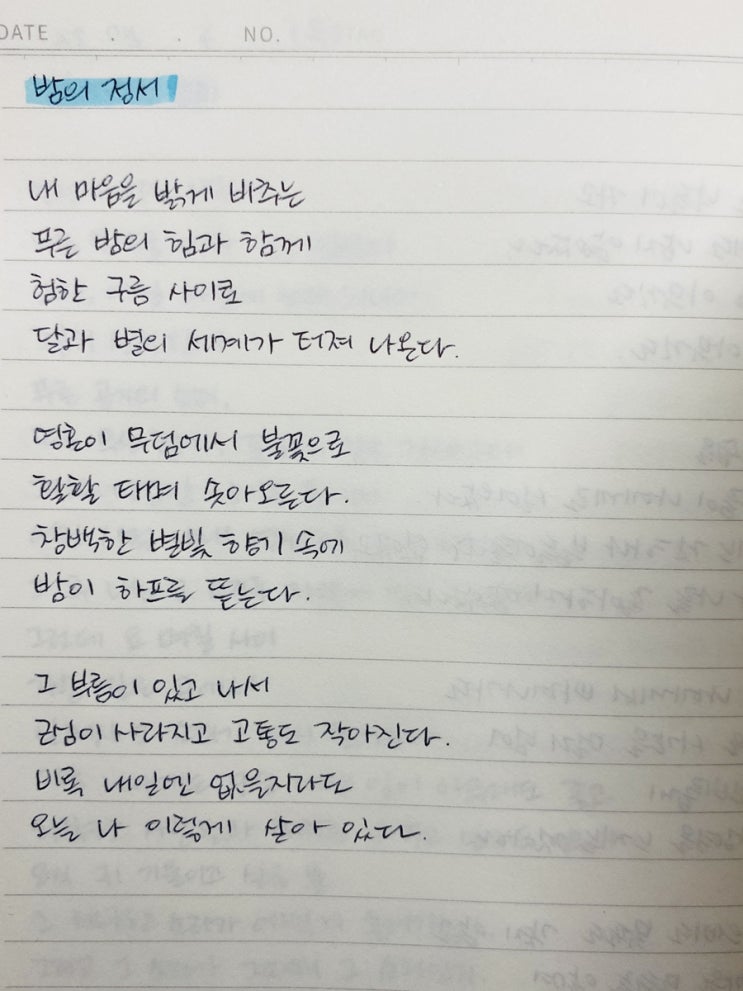 DATE . . NO.
밤의 정서
내 마음을 밝게 비추는
푸른 밤의 힘과 함께
험한 구름 사이로
달과 별의 세계가 터져 나온다.
영혼이 무덤에서 불꽃으로
활활 태며 솟아오른다.
창백한 별빛 향기 속에
밤이 하프를 뜯는다.
그 부름이 있고 나서
근심이 사라지고 고통도 작아진다.
비록 내일엔 없을지라도
오늘 나 이렇게 살아 있다.